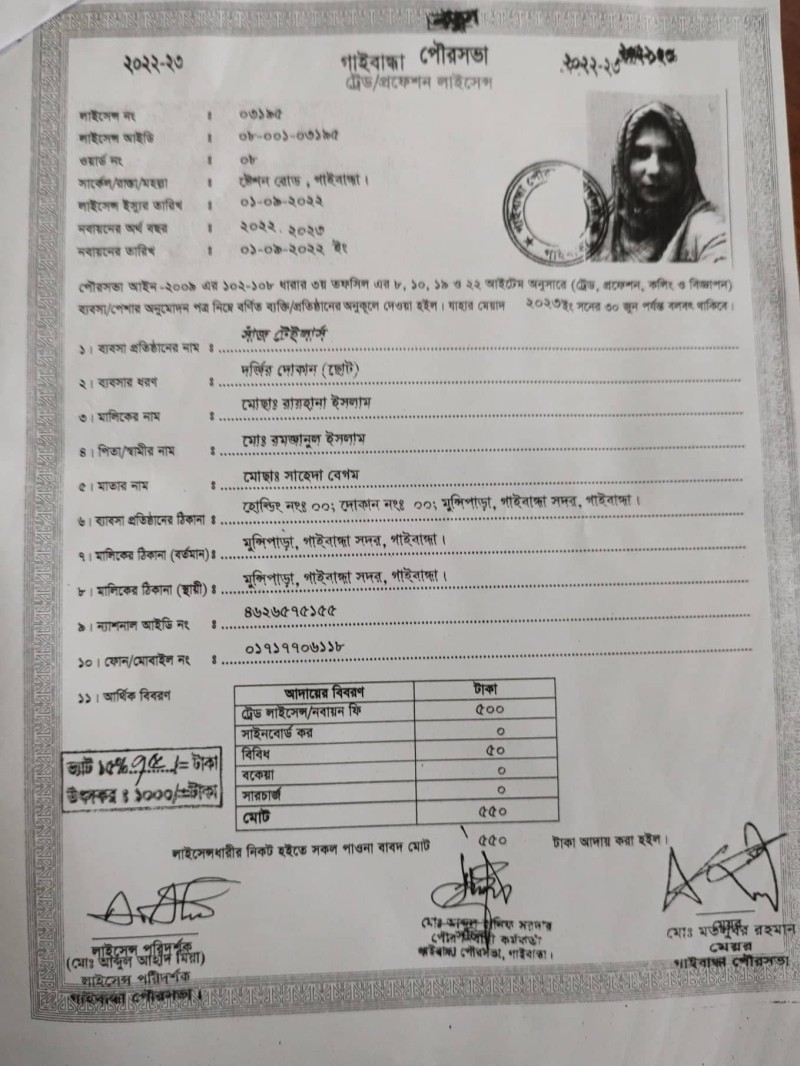 ২০২২-২৩
গাইবান্ধা পৌরসভা
২০২২-২৩
ট্রেড/প্রফেশন লাইসেন্স
লাইসেন্স নং : ০৩১৯৫
লাইসেন্স আইডি : ০৮-০০১-০৩১৯৫
ওয়ার্ড নং : ০৮
সার্কেল/রাস্তা/মহল্লা : ষ্টেশন রোড, গাইবান্ধা।
লাইসেন্স ইস্যুর তারিখ : ০১-০৯-২০২২
নবায়নের অর্থ বছর : ২০২২-২০২৩
নবায়নের তারিখ : ০১-০৯-২০২২ ইং
পৌরসভা আইন-২০০৯ এর ১০২-১০৮ ধারার ৩য় তফসিল এর ৮, ১০, ১৯ ও ২২ আইটেম অনুসারে (ট্রেড, প্রফেশন, কলিং ও বিজ্ঞাপন)
ব্যবসা/পেশার অনুমোদন পত্র নিম্নে বর্ণিত ব্যক্তি/প্রতিষ্ঠানের অনুকূলে দেওয়া হইল। যাহার মেয়াদ ২০২৩ইং সনের ৩০ জুন পর্যন্ত বলবৎ থাকিবে।
১। ব্যবসা প্রতিষ্ঠানের নাম ঃ সাঁজ টেইলার্স
২। ব্যবসার ধরণ ঃ দর্জির দোকান (ছোট)
৩। মালিকের নাম ঃ মোছাঃ রায়হানা ইসলাম
৪। পিতা/স্বামীর নাম ঃ মোঃ রমজানুল ইসলাম
৫। মাতার নাম ঃ মোছাঃ সাহেদা বেগম
৬। ব্যবসা প্রতিষ্ঠানের ঠিকানা ঃ হোল্ডিং নংঃ ০০; দোকান নংঃ ০০; মুন্সিপাড়া, গাইবান্ধা সদর, গাইবান্ধা।
৭। মালিকের ঠিকানা (বর্তমান) ঃ মুন্সিপাড়া, গাইবান্ধা সদর, গাইবান্ধা।
৮। মালিকের ঠিকানা (স্থায়ী) ঃ মুন্সিপাড়া, গাইবান্ধা সদর, গাইবান্ধা।
৯। ন্যাশনাল আইডি নং ঃ ৪৬২৬৫৭৫১৫৫
১০। ফোন/মোবাইল নং ঃ ০১৭১৭৭০৬১১৮
১১। আর্থিক বিবরণ
আদায়ের বিবরণ টাকা
ট্রেড লাইসেন্স/নবায়ন ফি ৫০০
সাইনবোর্ড কর ০
বিবিধ ৫০
বকেয়া ০
সারচার্জ ০
মোট ৫৫০
ভ্যাট ১৫% ৭৫/= টাকা
উৎসকর ঃ ১০০০/=টাকা
লাইসেন্সধারীর নিকট হইতে সকল পাওনা বাবদ মোট ৫৫০ টাকা আদায় করা হইল।
লাইসেন্স পরিদর্শক
(মোঃ আব্দুল আহাদ মিয়া)
লাইসেন্স পরিদর্শক
গাইবান্ধা পৌরসভা।
গাইবান্ধা পৌরসভা, গাইবান্ধা।
মেয়র
মোঃ মতলুবর রহমান
মেয়র
গাইবান্ধা পৌরসভা